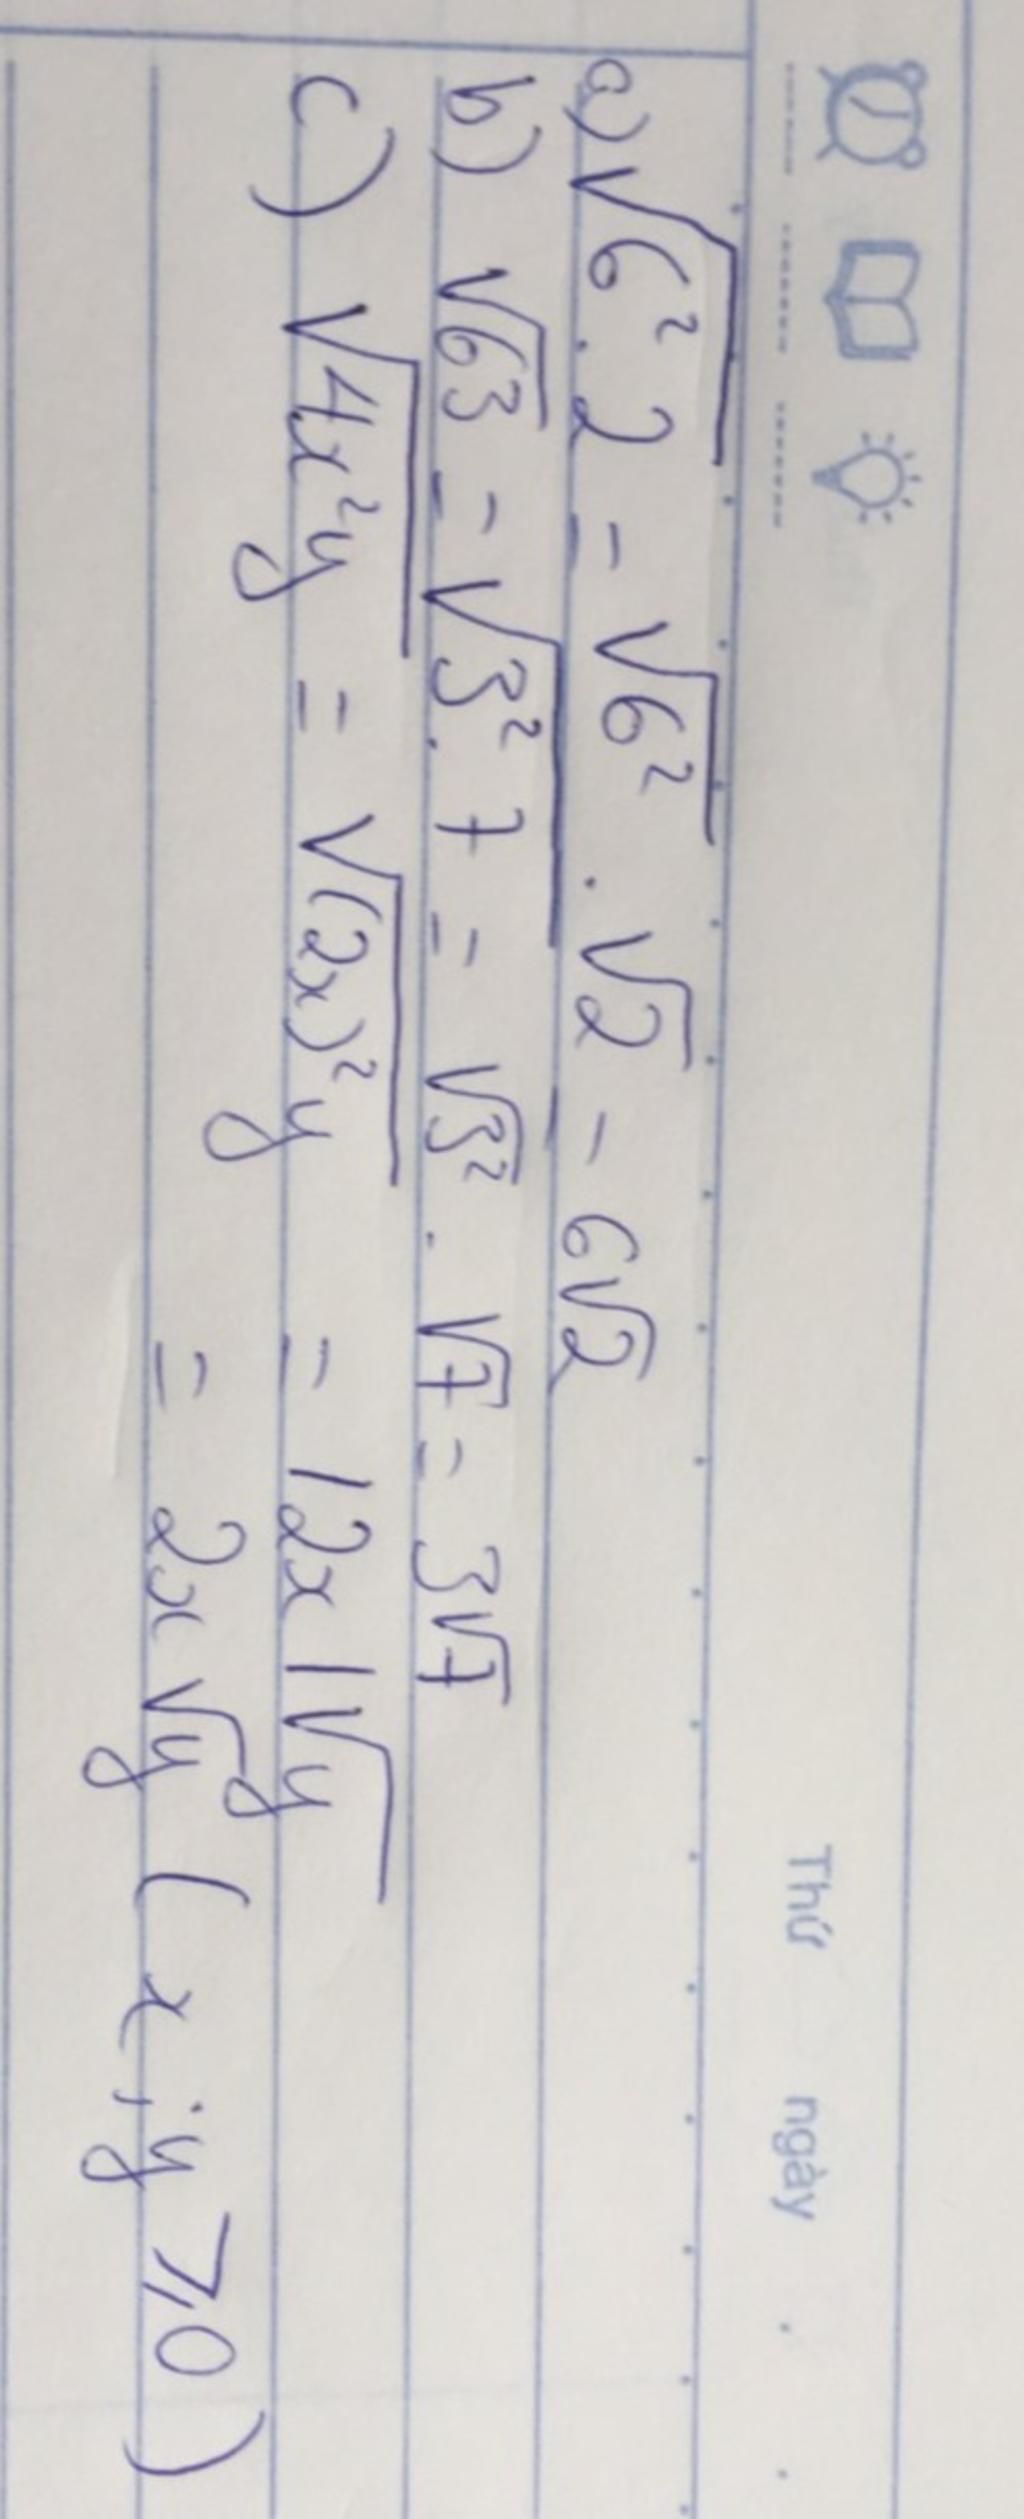 Thứ ngày
a) √(6².2) = √(6²) . √2 = 6√2
b) √63 = √(3².7) = √(3²) . √7 = 3√7
c) √(4x²y) = √((2x)²y) = |2x|√y
= 2x√y (x;y ⩾ 0)